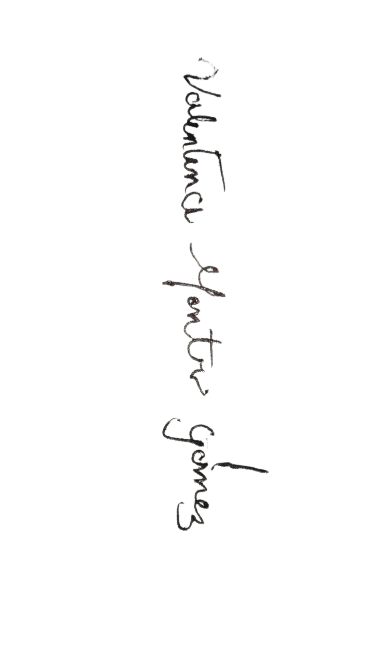 Valentina Yantu Gómez